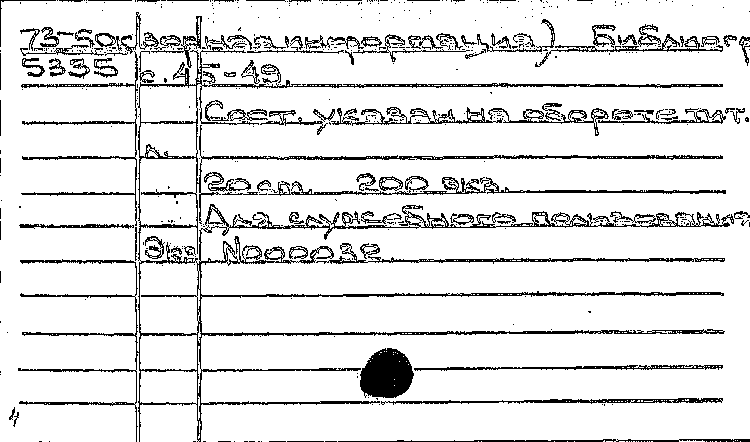 73-50с зорная информация) Библиогр
5335 с. 45-49.
Сост. указан на обороте тит.
л.
20 ст. 200 экз.
Для служебного пользования
Экз. N000032
4